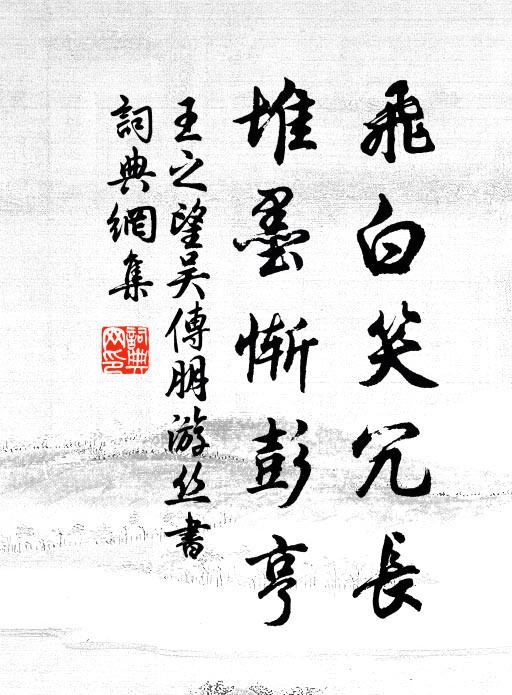 飛白笑冗長
堆墨慚彭亨
王之望吳傅朋游丝書
詞典網集
詞典網印